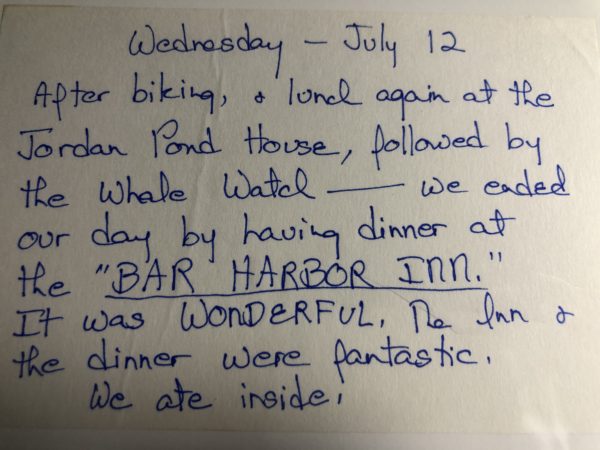 Wednesday - July 12
After biking, & lunch again at the
Jordan Pond House, followed by
the Whale Watch —— we ended
our day by having dinner at
the "BAR HARBOR INN."
It was WONDERFUL. The Inn &
the dinner were fantastic.
We ate inside.